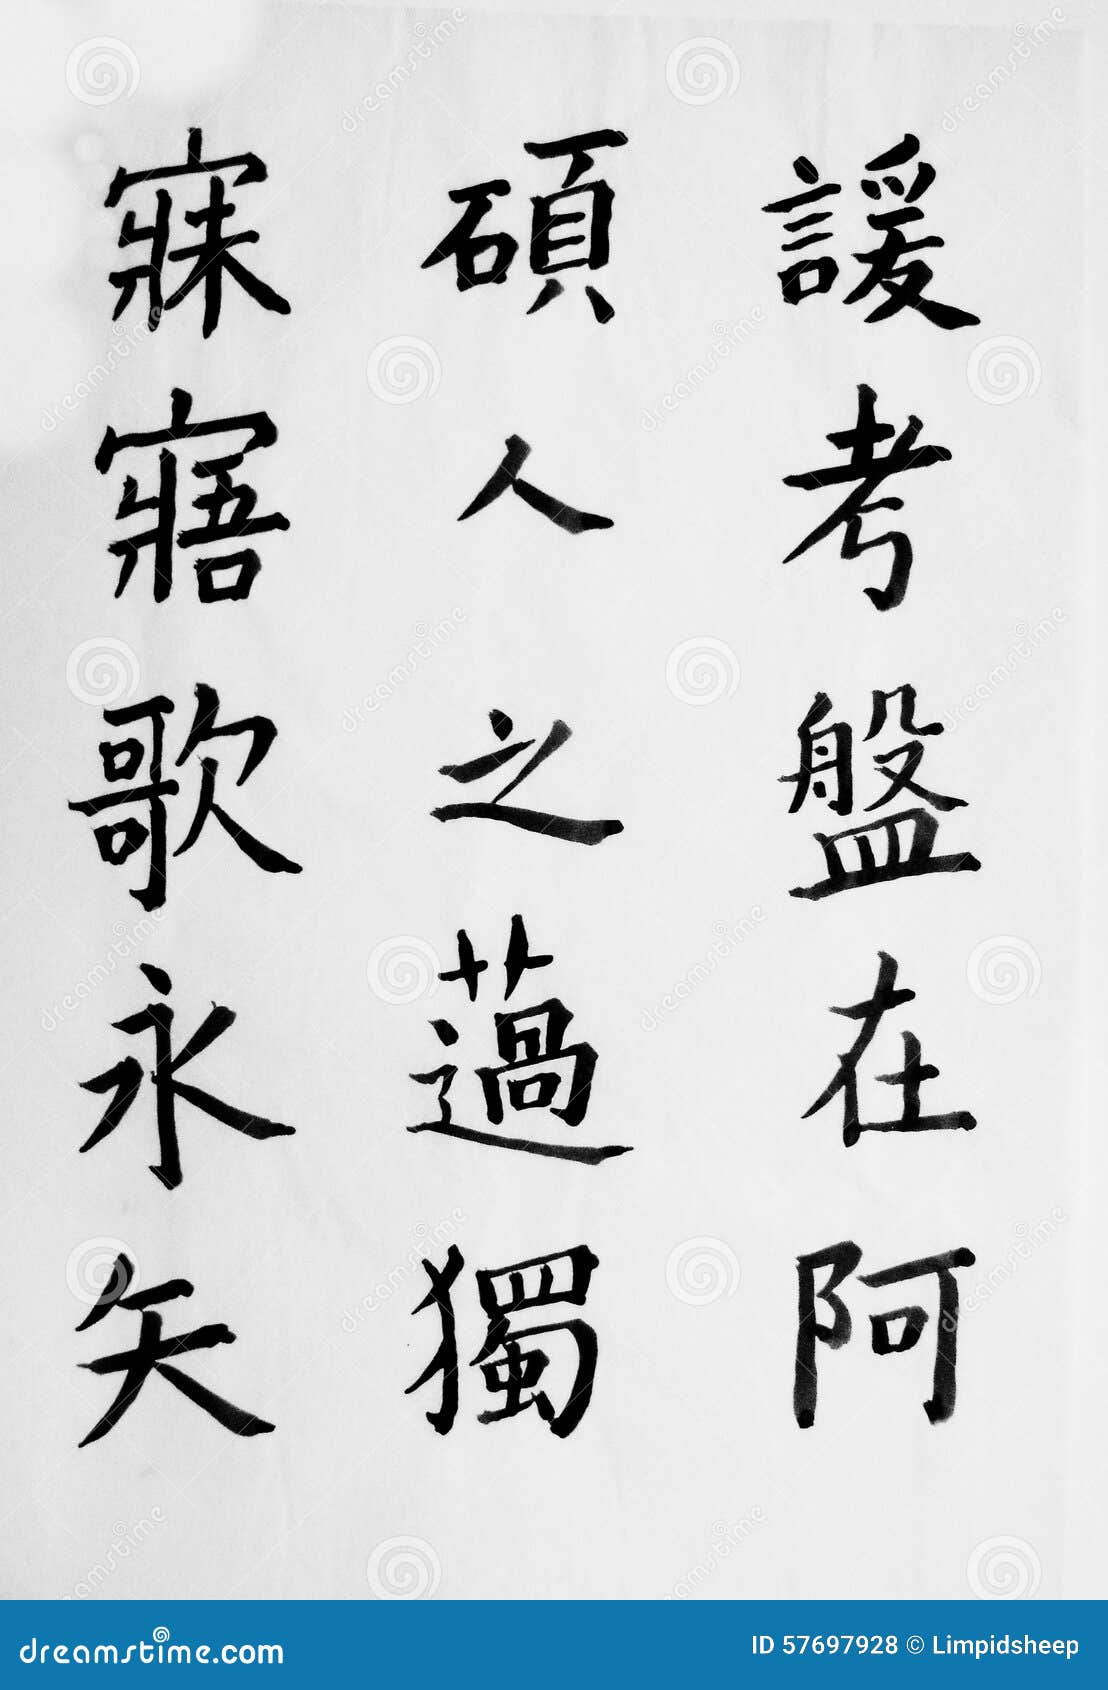 諼考盤在阿
碩人之薖獨
寐寤歌永矢
dreamstime.com
ID 57697928 © Limpidsheep